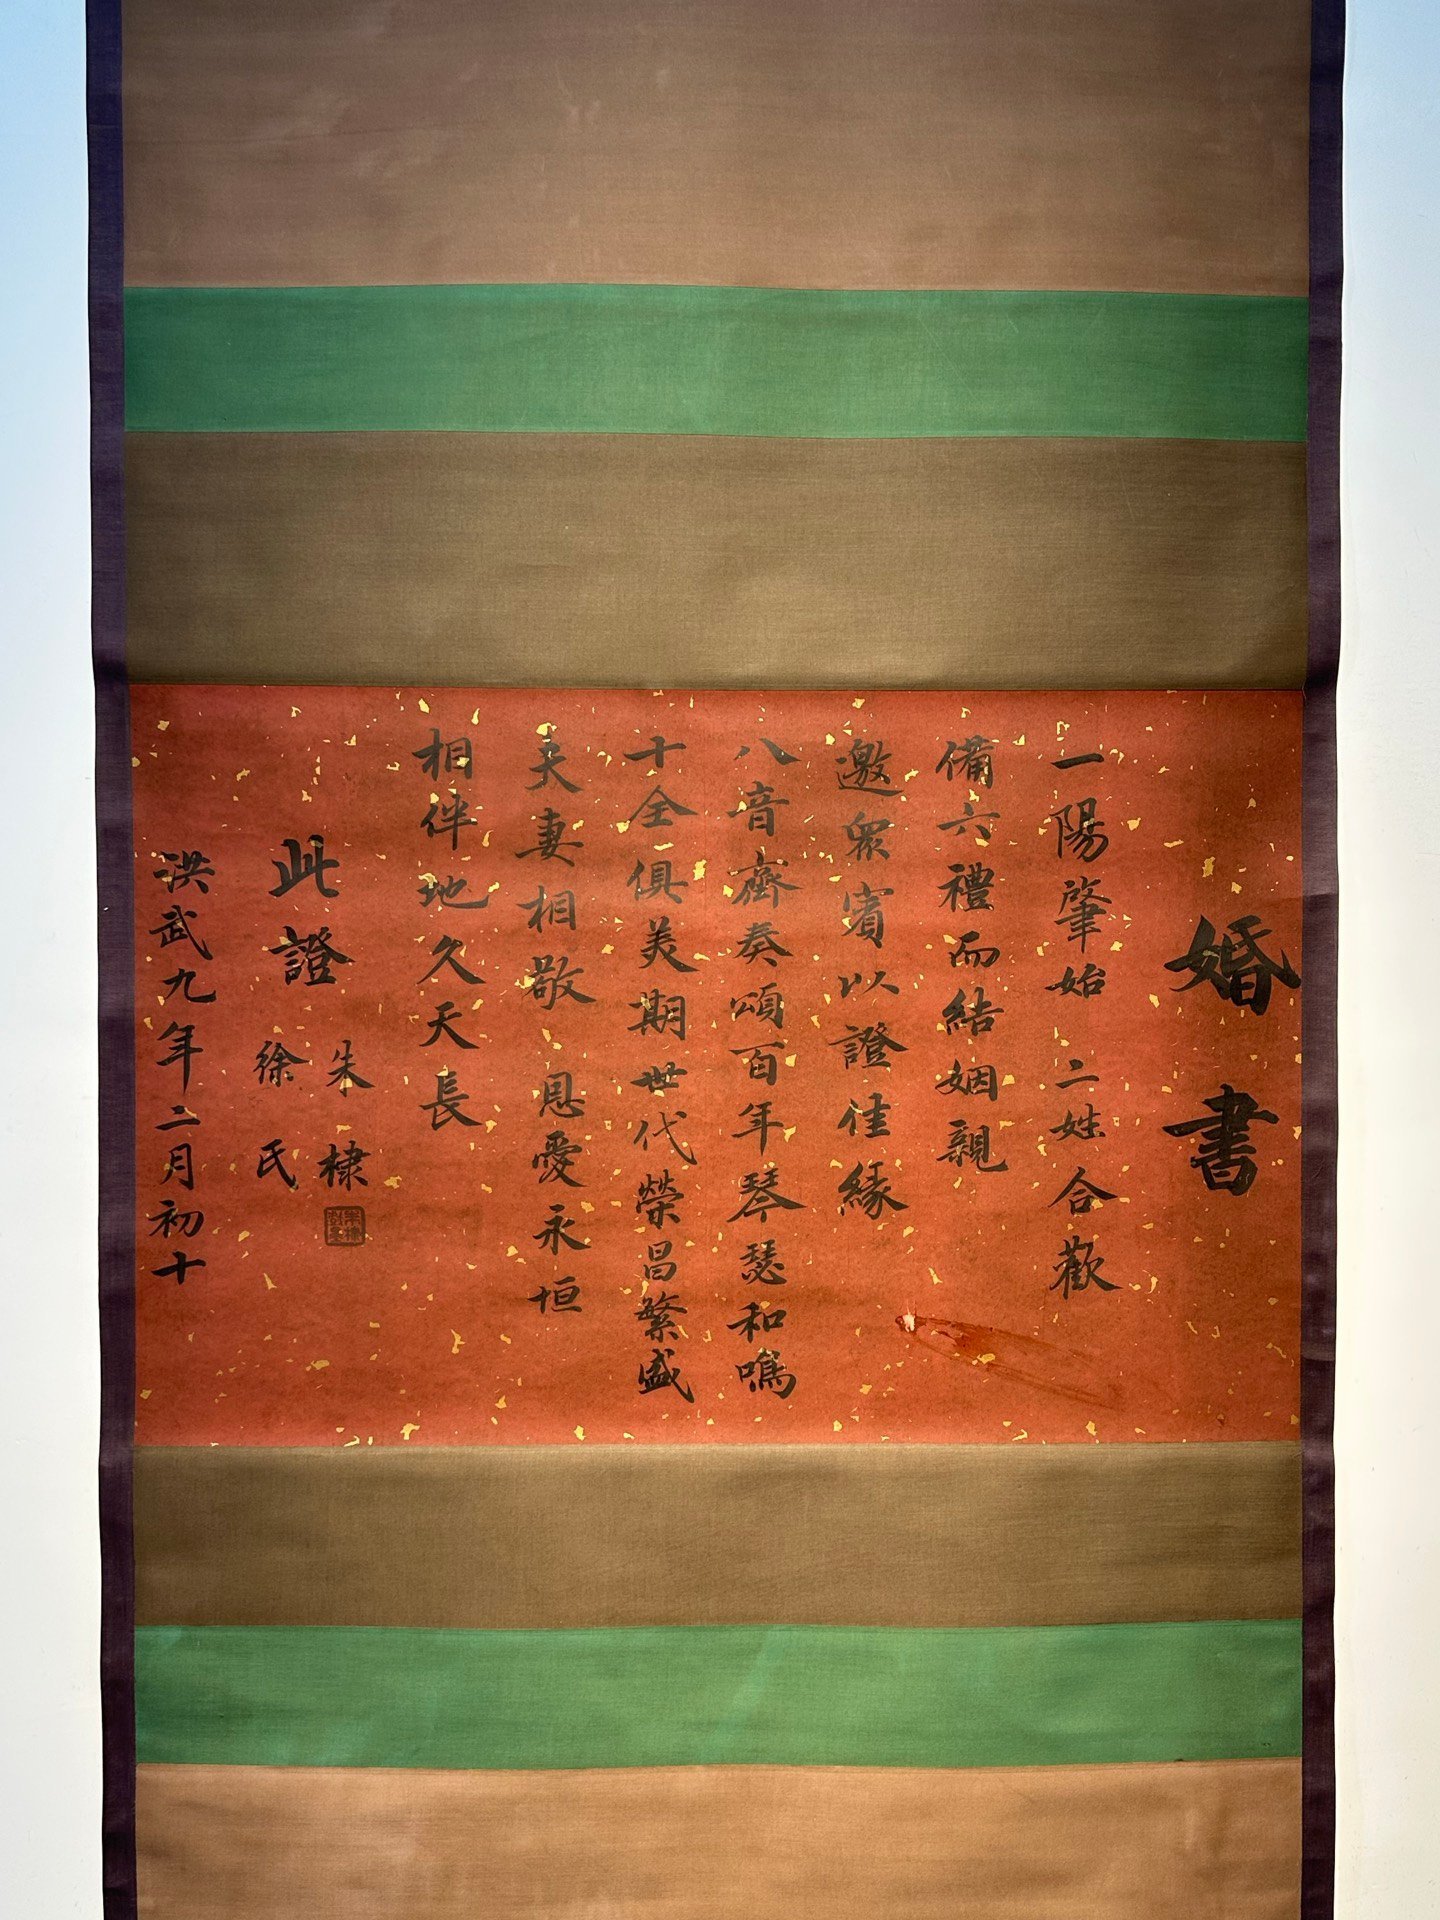 婚書
一陽肇始 二姓合歡
備六禮而結姻親
邀眾賓以證佳緣
八音齊奏頌百年琴瑟和鳴
十全俱美期世代榮昌繁盛
夫妻相敬 恩愛永恒
相伴地久天長
此證
朱棣
徐氏
洪武九年二月初十